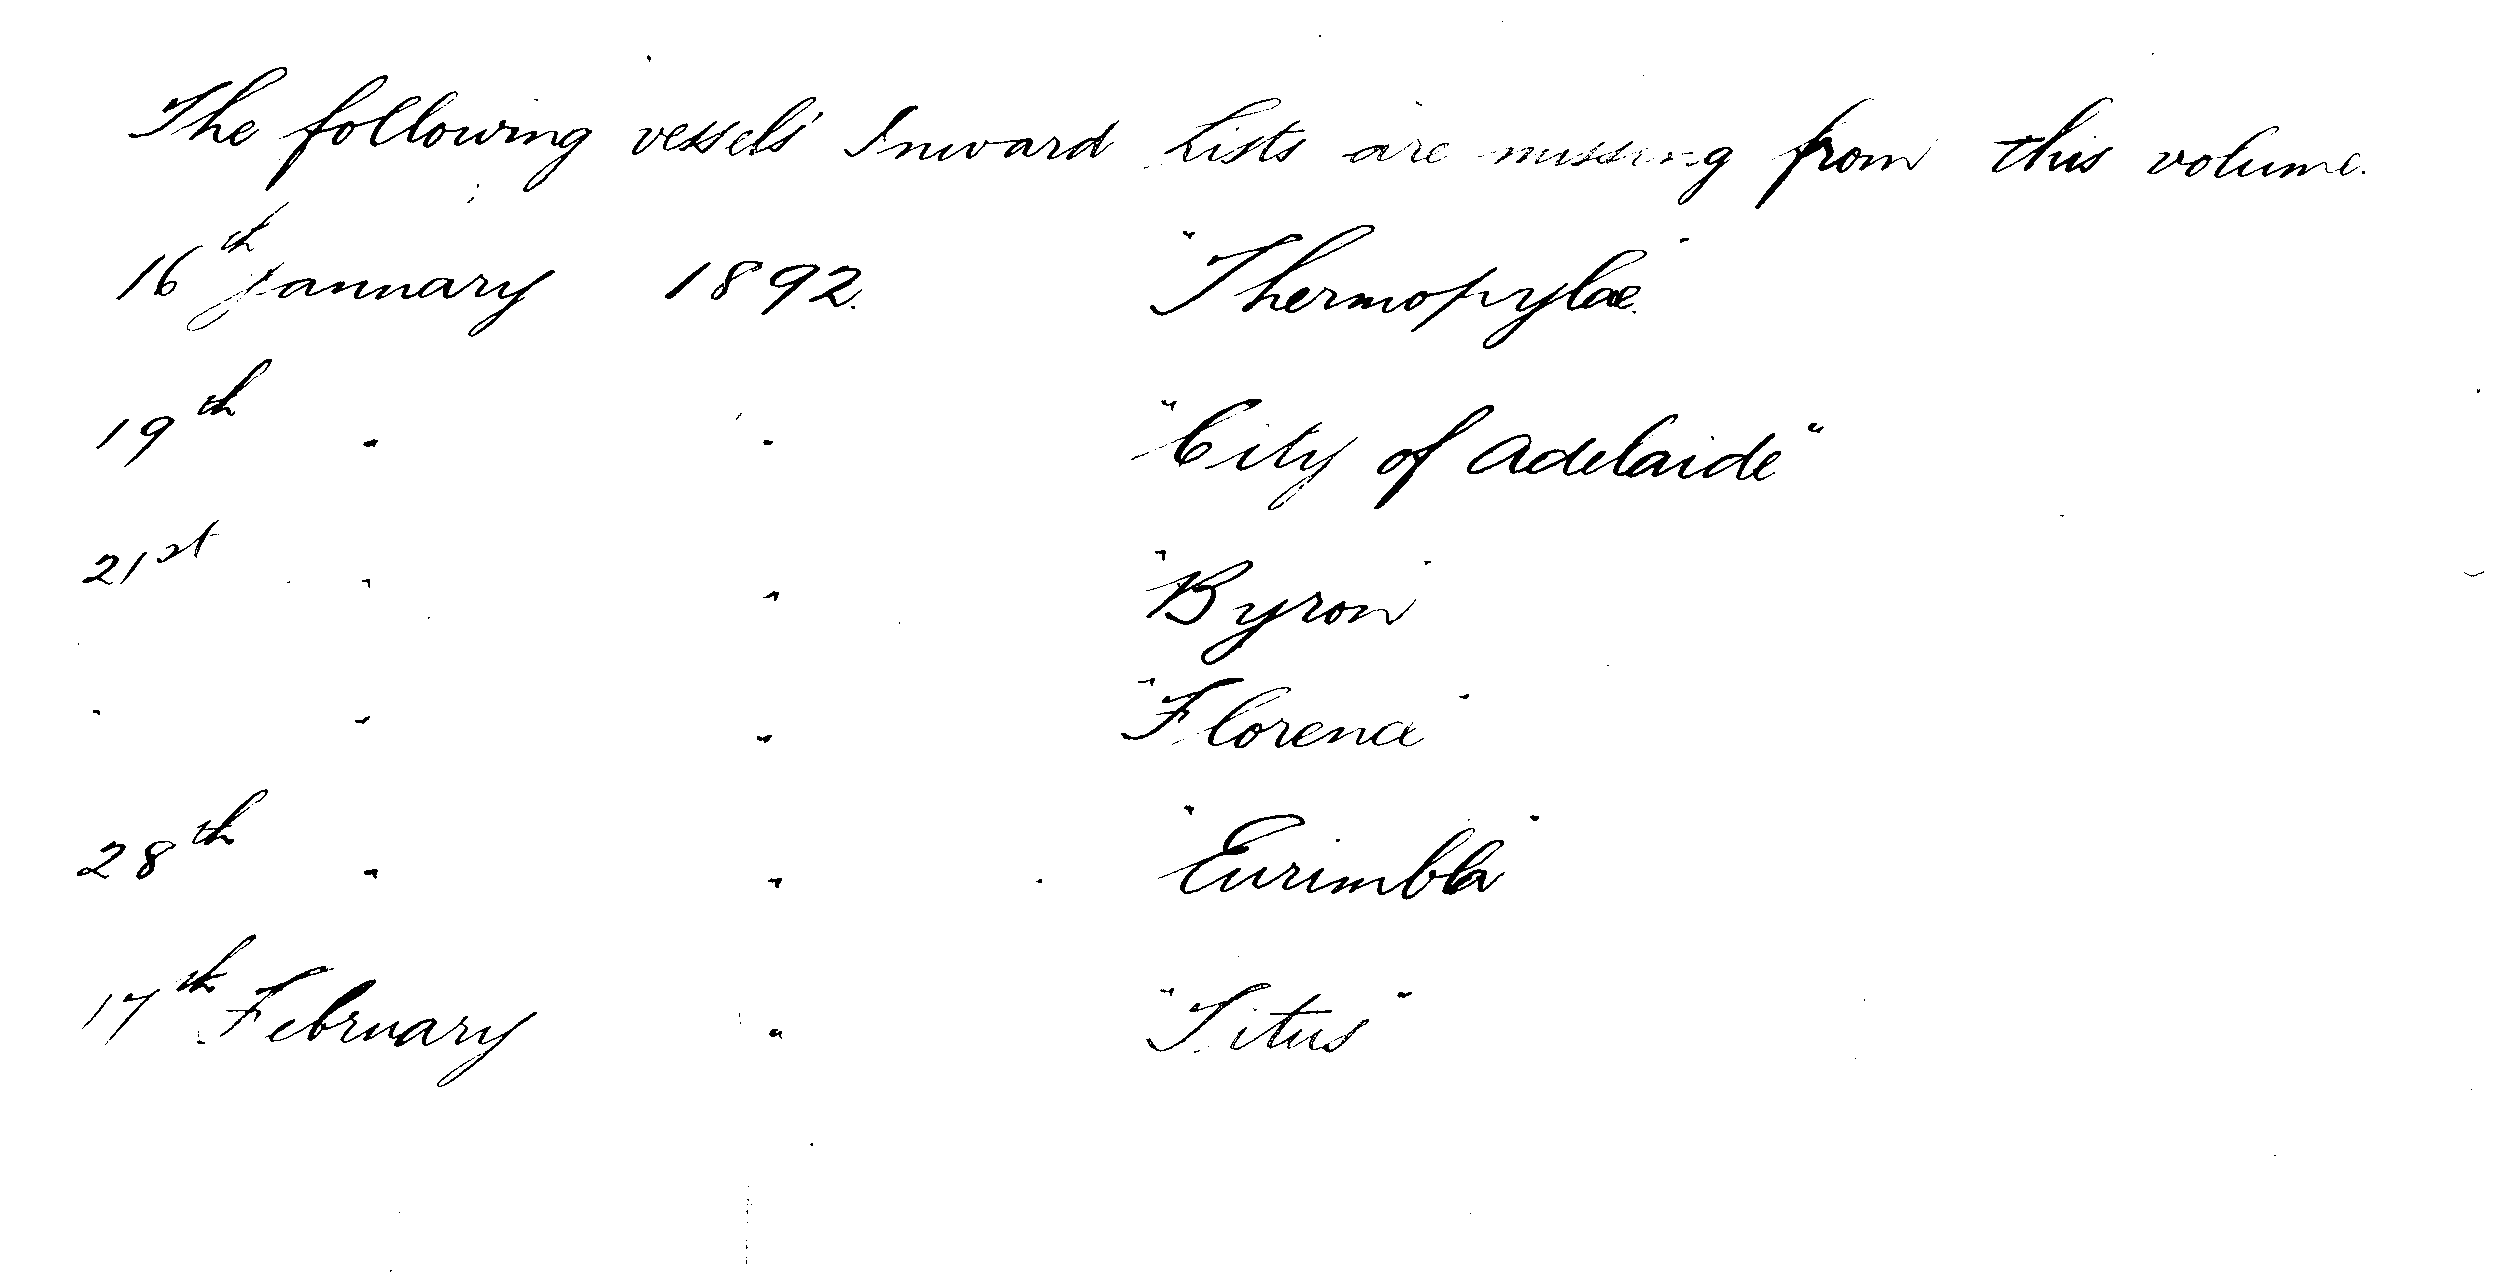 The following vessels' Inward Lists are missing from this volume.
16th January 1892. "Thermopylae."
19th " " "City of Adelaide"
21st " " "Byron"
" " " "Florena"
28th " " "Eurimbla"
17th February " "Titus"